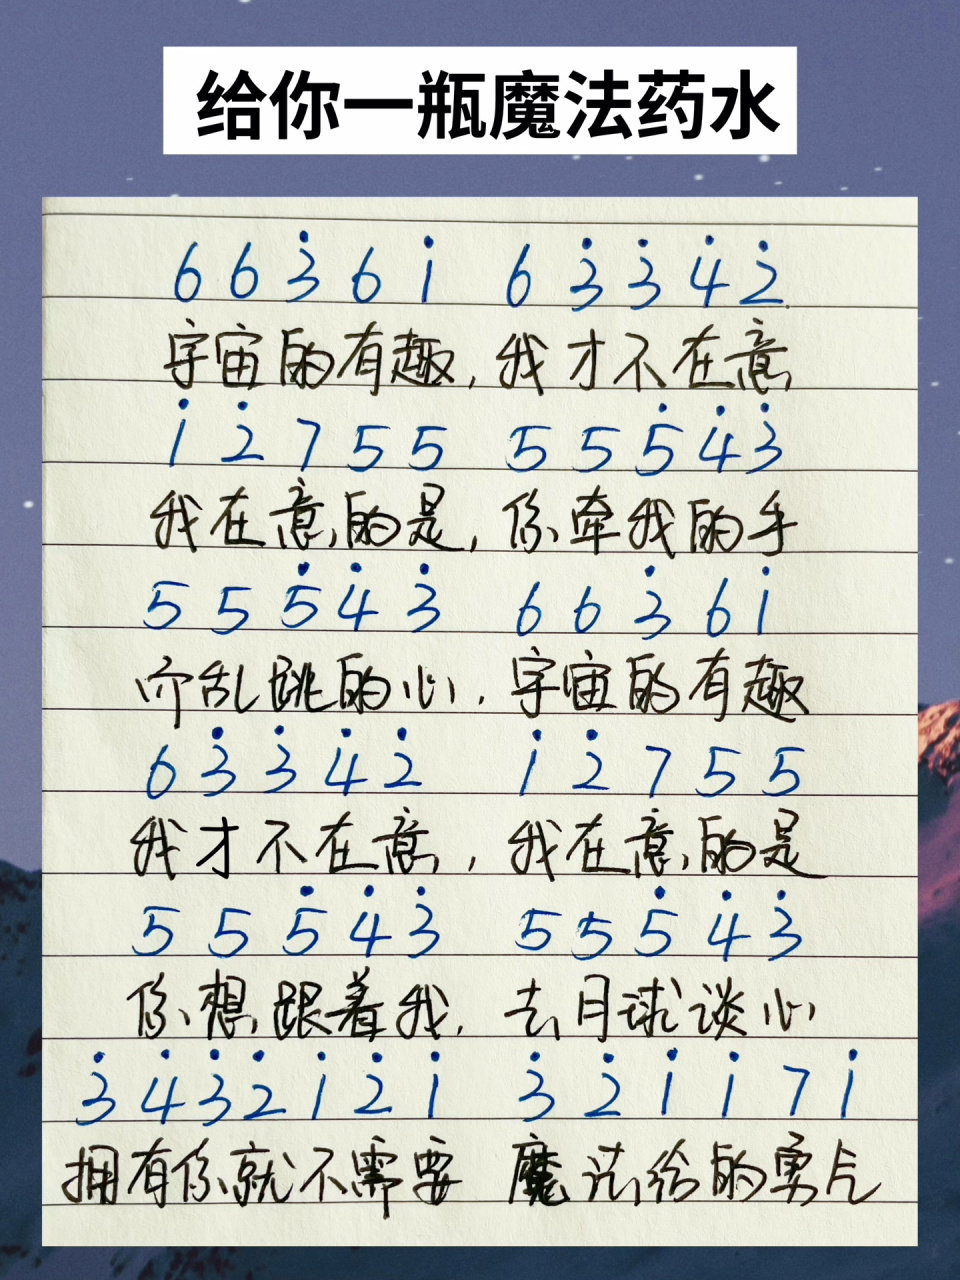 给你一瓶魔法药水
6 6 3̇ 6 1̇ 6 3̇ 3̇ 4̇ 2̇
宇宙的有趣,我才不在意
1̇ 2̇ 7 5 5 5 5 5̇ 4̇ 3̇
我在意的是,你牵我的手
5 5 5̇ 4̇ 3̇ 6 6 3̇ 6 1̇
而乱跳的心,宇宙的有趣
6 3̇ 3̇ 4̇ 2̇ 1̇ 2̇ 7 5 5
我才不在意,我在意的是
5 5 5̇ 4̇ 3̇ 5 5 5̇ 4̇ 3̇
你想跟着我,去月球谈心
3̇ 4̇ 3̇ 2̇ 1̇ 2̇ 1̇ 3̇ 2̇ 1̇ 1̇ 7 1̇
拥有你就不需要 魔法给的勇气